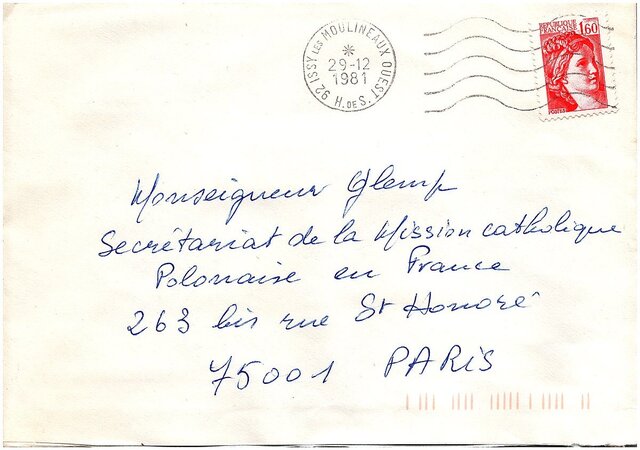 92 ISSY LES MOULINEAUX OUEST
29-12
1981
H. DE S.
REPUBLIQUE
FRANCAISE
1,60
POSTES
Monseigneur Glemp
Secrétariat de la Mission catholique
Polonaise en France
263 bis rue St Honoré
75001 PARIS